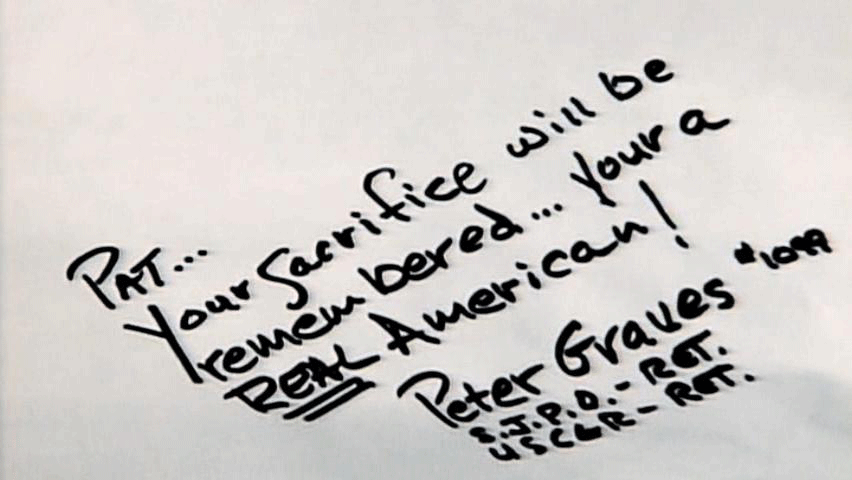 PAT...
Your Sacrifice will be
remembered... your a
REAL American!
Peter Graves #1099
S.J.P.D. - RET.
USCGR - RET.